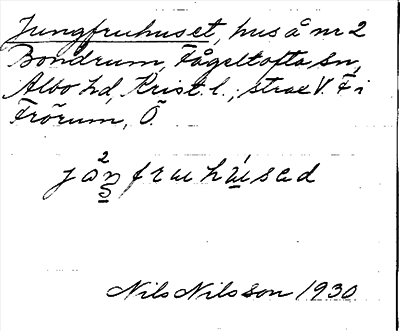 Jungfruhuset, hus å nr 2
Bondrum, Fågeltofta sn,
Albo hd, Krist. l., strax V. F i
Frörum, Ö.
Nils Nilsson 1930